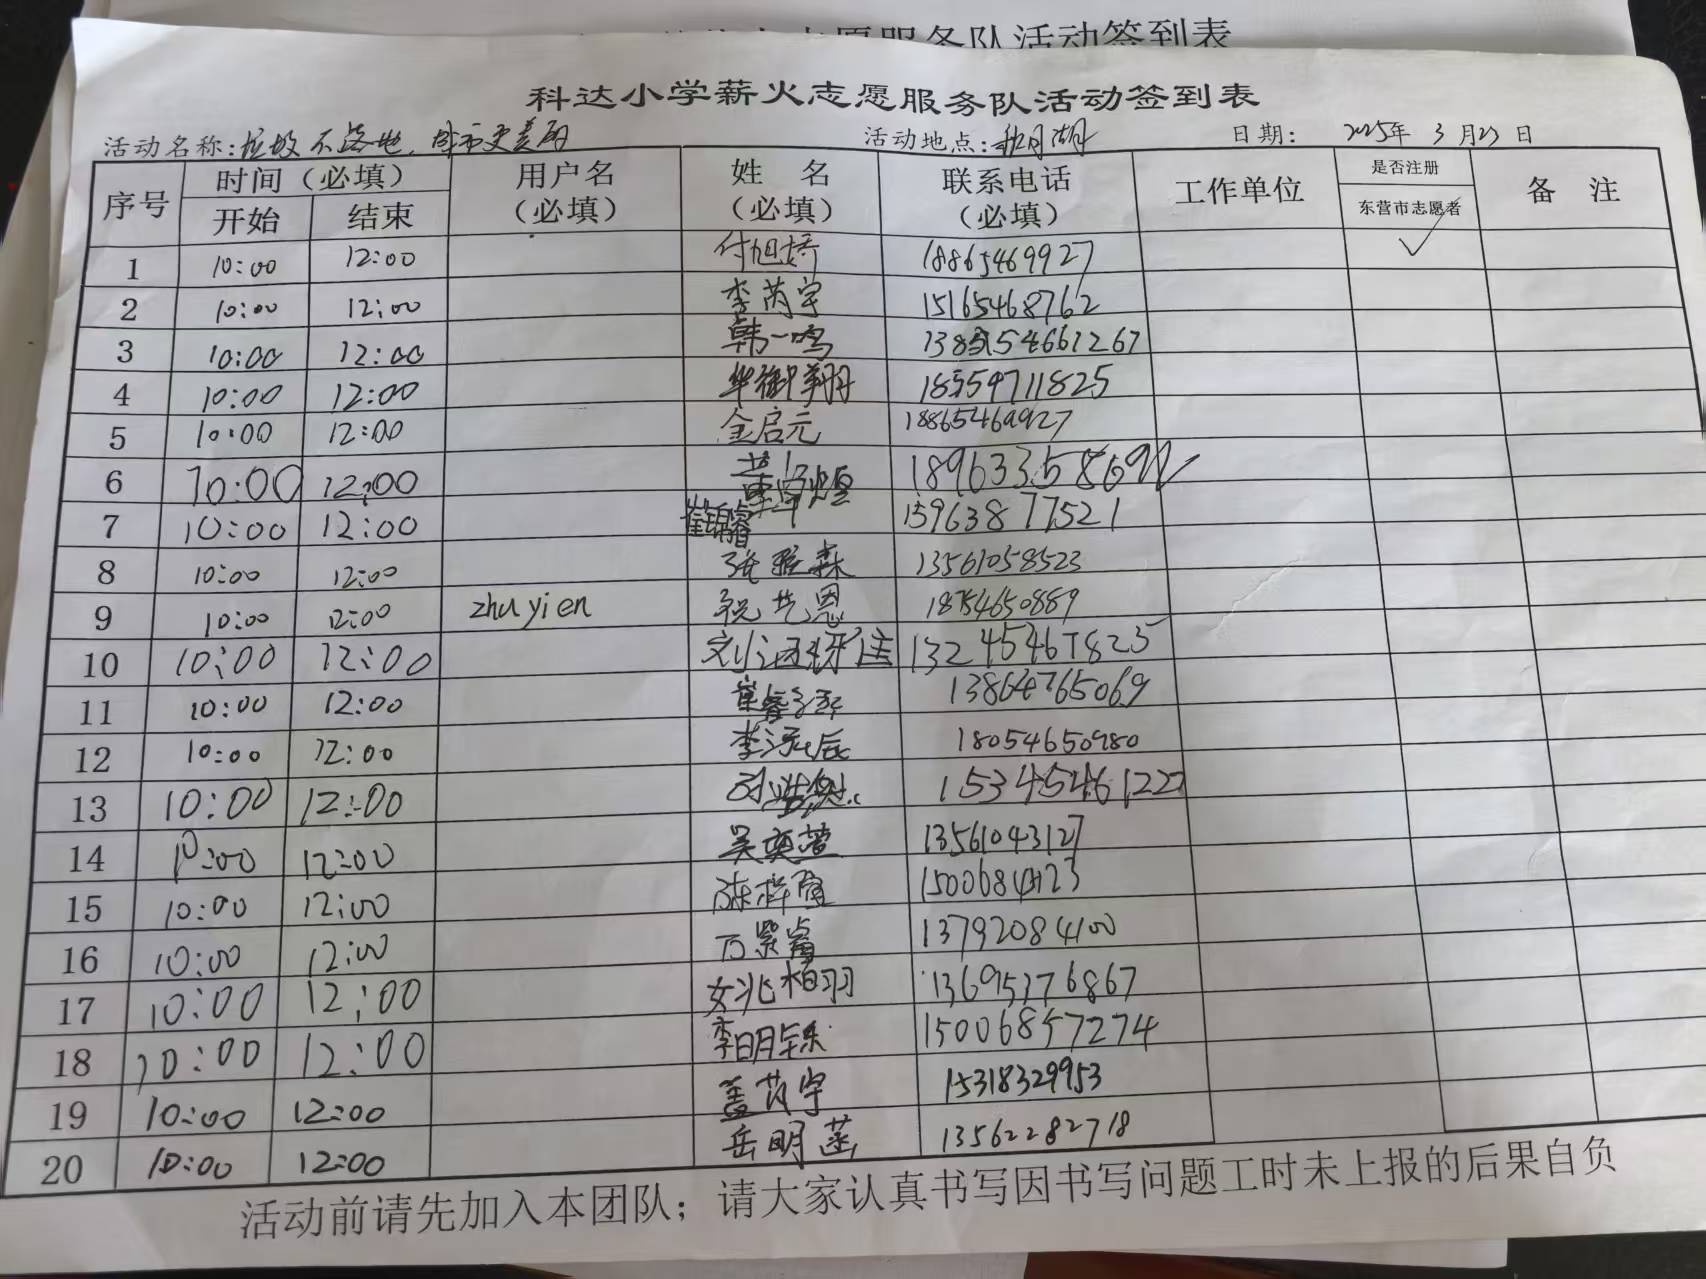 科达小学薪火志愿服务队活动签到表
活动名称:垃圾不落地,城市更美丽 活动地点:秋月湖 日期: 2025年 3月23日
序号 时间(必填) 开始 结束 用户名(必填) 姓 名(必填) 联系电话(必填) 工作单位 是否注册 东营市志愿者 备 注
1 10:00 12:00 付旭娇 18865469927 ✓
2 10:00 12:00 李芮宇 15165468762
3 10:00 12:00 韩一鸣
4 10:00 12:00 华御翔 18554711825
5 10:00 12:00 金启元 18865469927
6 10:00 12:00
7 10:00 12:00 崔锦睿 15963877521
8 10:00 12:00 张雅森 13561058523
9 10:00 12:00 zhuyien 祝艺恩 18754650889
10 10:00 12:00 13245467825
11 10:00 12:00 13864765069
12 10:00 12:00 18054650980
13 10:00 12:00 15345461222
14 10:00 12:00 吴奕萱 13561043127
15 10:00 12:00
16 10:00 12:00 13792084100
17 10:00 12:00 姚柏羽 13695376867
18 10:00 12:00 15006857274
19 10:00 12:00 盖芮宇 15318329953
20 10:00 12:00 岳明菡 13562282718
活动前请先加入本团队;请大家认真书写因书写问题工时未上报的后果自负